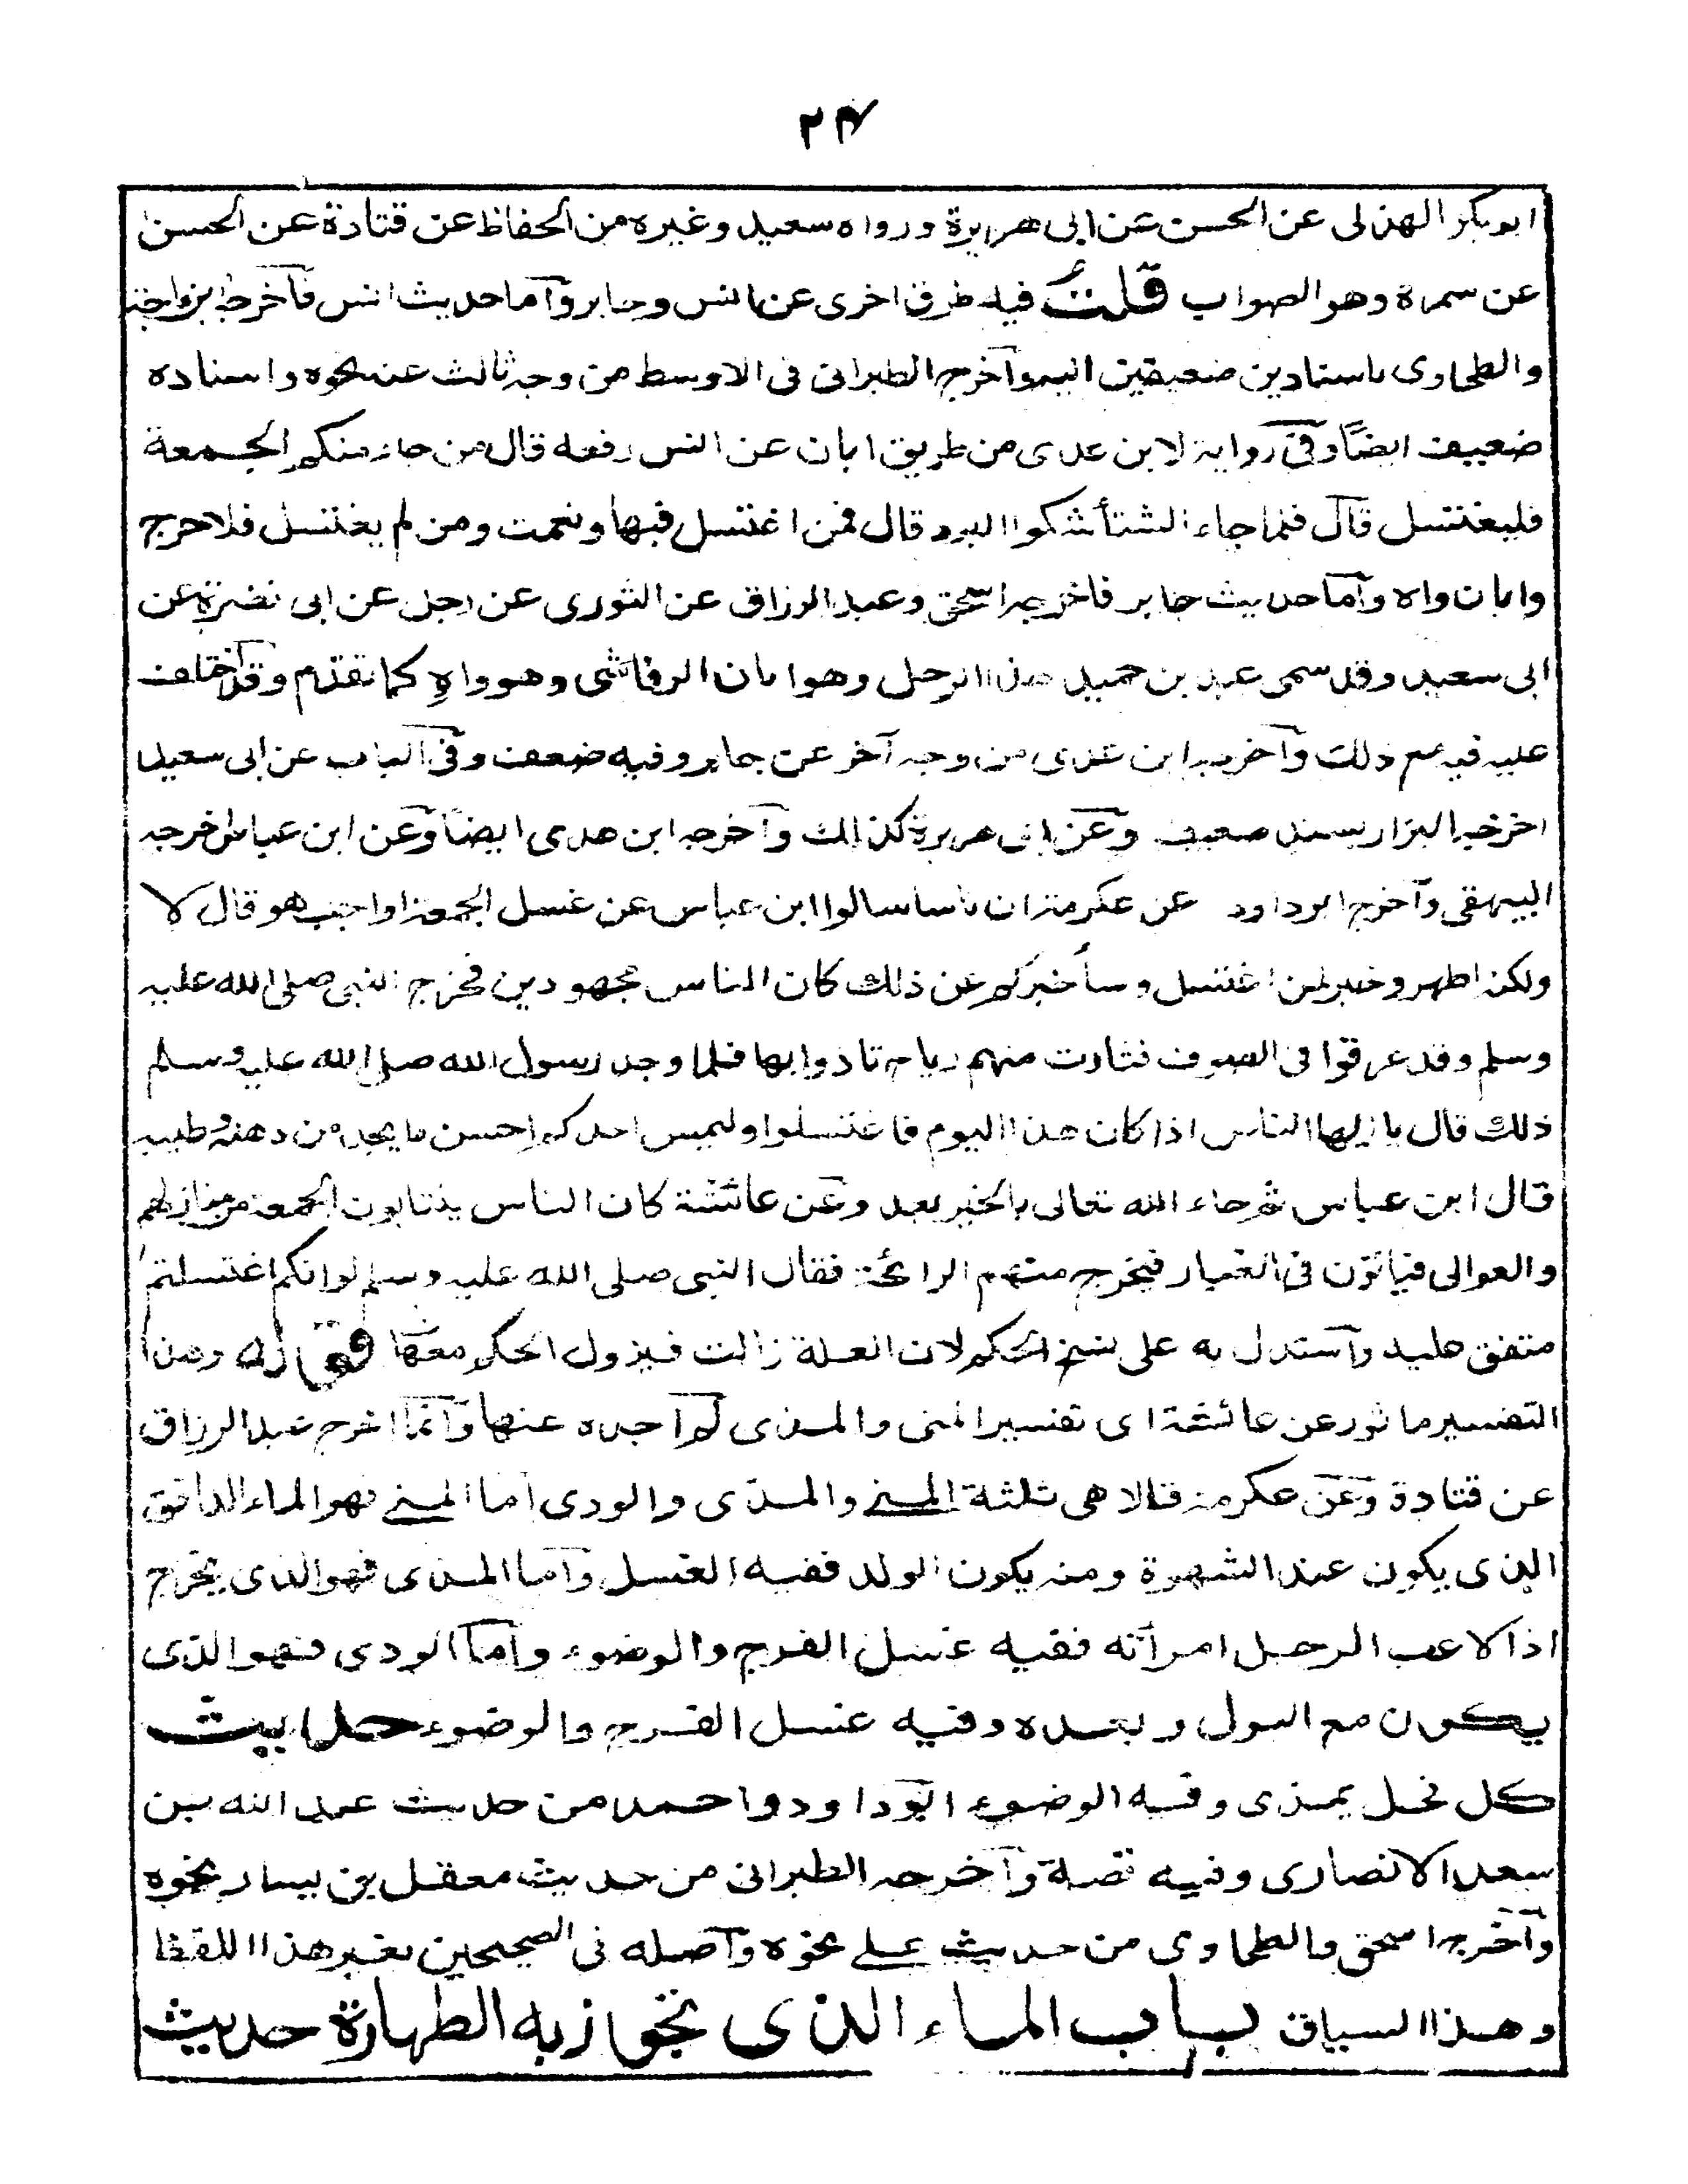 ٢٤
ابوبكر الهذلى عن الحسن عن ابى هريرة ورواه سعيد وغيره من الحفاظ عن قتادة عن الحسن
عن سمرة وهو الصواب قلت فيه طرق اخرى عن انس وجابر وأما حديث انس فأخرجه ابن ماجه
والطحاوى باسنادين ضعيفين اليه وأخرجه الطبرانى فى الاوسط من وجه ثالث عنه نحوه واسناده
ضعيف ايضًا وفى رواية لابن عدى من طريق ابان عن انس رفعه قال من جاء منكم الجمعة
فليغتسل قال فلما جاء الشتأ شكوا البرد قال فمن اغتسل فبها ونعمت ومن لم يغتسل فلا حرج
وابان واه وأما حديث جابر فاخرجه اسحق وعبد الرزاق عن الثورى عن رجل عن ابى نضرة عن
ابى سعيد وقد سمى عبد بن حميد هذا الرجل وهو ابان الرقاشى وهو واهٍ كما تقدم وقد اختلف
عليه فيه مع ذلك وأخرجه ابن عدى من وجه آخر عن جابر وفيه ضعف وفى الباب عن ابى سعيد
اخرجه البزار بسند ضعيف وعن ابى هريرة كذلك وأخرجه ابن عدى ايضًا وعن ابن عباس اخرجه
البيهقى وأخرج ابوداود عن عكرمة ان ناسا سالوا ابن عباس عن غسل الجمعة اواجب هو قال لا
ولكنه اطهر وخير لمن اغتسل وسأخبركم عن ذلك كان الناس مجهودين فخرج النبى صلى الله عليه
وسلم وقد عرقوا فى الصوف فثارت منهم رياح تاذوا بها فلما وجد رسول الله صلى الله عليه وسلم
ذلك قال يا ايها الناس اذا كان هذا اليوم فاغتسلوا وليمس احدكم احسن ما يجد من دهنه وطيبه
قال ابن عباس ثم جاء الله تعالى بالخير بعد وعن عائشة كان الناس ينتابون الجمعة من منازلهم
والعوالى فياتون فى الغبار فيخرج منهم الرائحة فقال النبى صلى الله عليه وسلم لو انكم اغتسلتم
متفق عليه وأستدل به على نسخ الحكم لان العلة زالت فيزول الحكم معها قوله وهذا
التفسير ماثور عن عائشة اى تفسير المنى والمذى لم اجده عنها وانما اخرج عبد الرزاق
عن قتادة وعن عكرمة قالا هى ثلثة المنے والمذى والودى أما المنے فهو الماء الدافق
الذى يكون عند الشهوة ومنه يكون الولد ففيه الغسل وأما المذى فهو الذى يخرج
اذا لاعب الرجل امرأته ففيه غسل الفرج والوضوء وأما الودى فهو الذى
يكون مع البول وبعده وفيه غسل الفرج والوضوء حديث
كل فحل يمذى وفيه الوضوء ابوداود واحمد من حديث عبد الله بن
سعد الانصارى وفيه قصة وأخرجه الطبرانى من حديث معقل بن يسار نحوه
وأخرجه اسحق والطحاوى من حديث علے نحوه وأصله فى الصحيحين بغير هذا اللفظ
وهذا السياق باب الماء الذى تجوز به الطهارة حديث